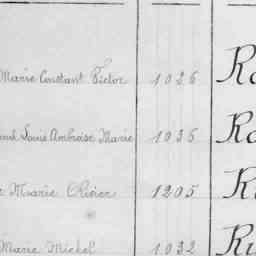 Marie Constant Victor 1026
Louis Ambroise Marie 1035
Marie Olivier 1205
Marie Michel 1032